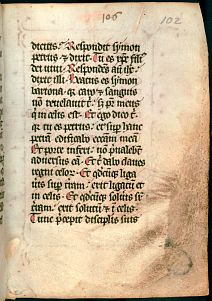 106
102
dicitis Respondit symon
petrus & dixit Tu es xpc fili
dei vivi Respondens aut ihc
dixit illi Beatus es symon
bariona qr caro & sanguis
non revelavit t s pr meus
qui in celis est Et ego dico t
qr tu es petrus et sup hanc
petra edificabo ecclam mea
Et porte inferi non prevalebt
adversus ea Et t dabo claves
regni celor Et qdcuqz liga
vis sup tram erit ligatu et
in celis Et qdcuqz solvis sup
tram erit solutu & i celis
Tunc precepit discipulis suis